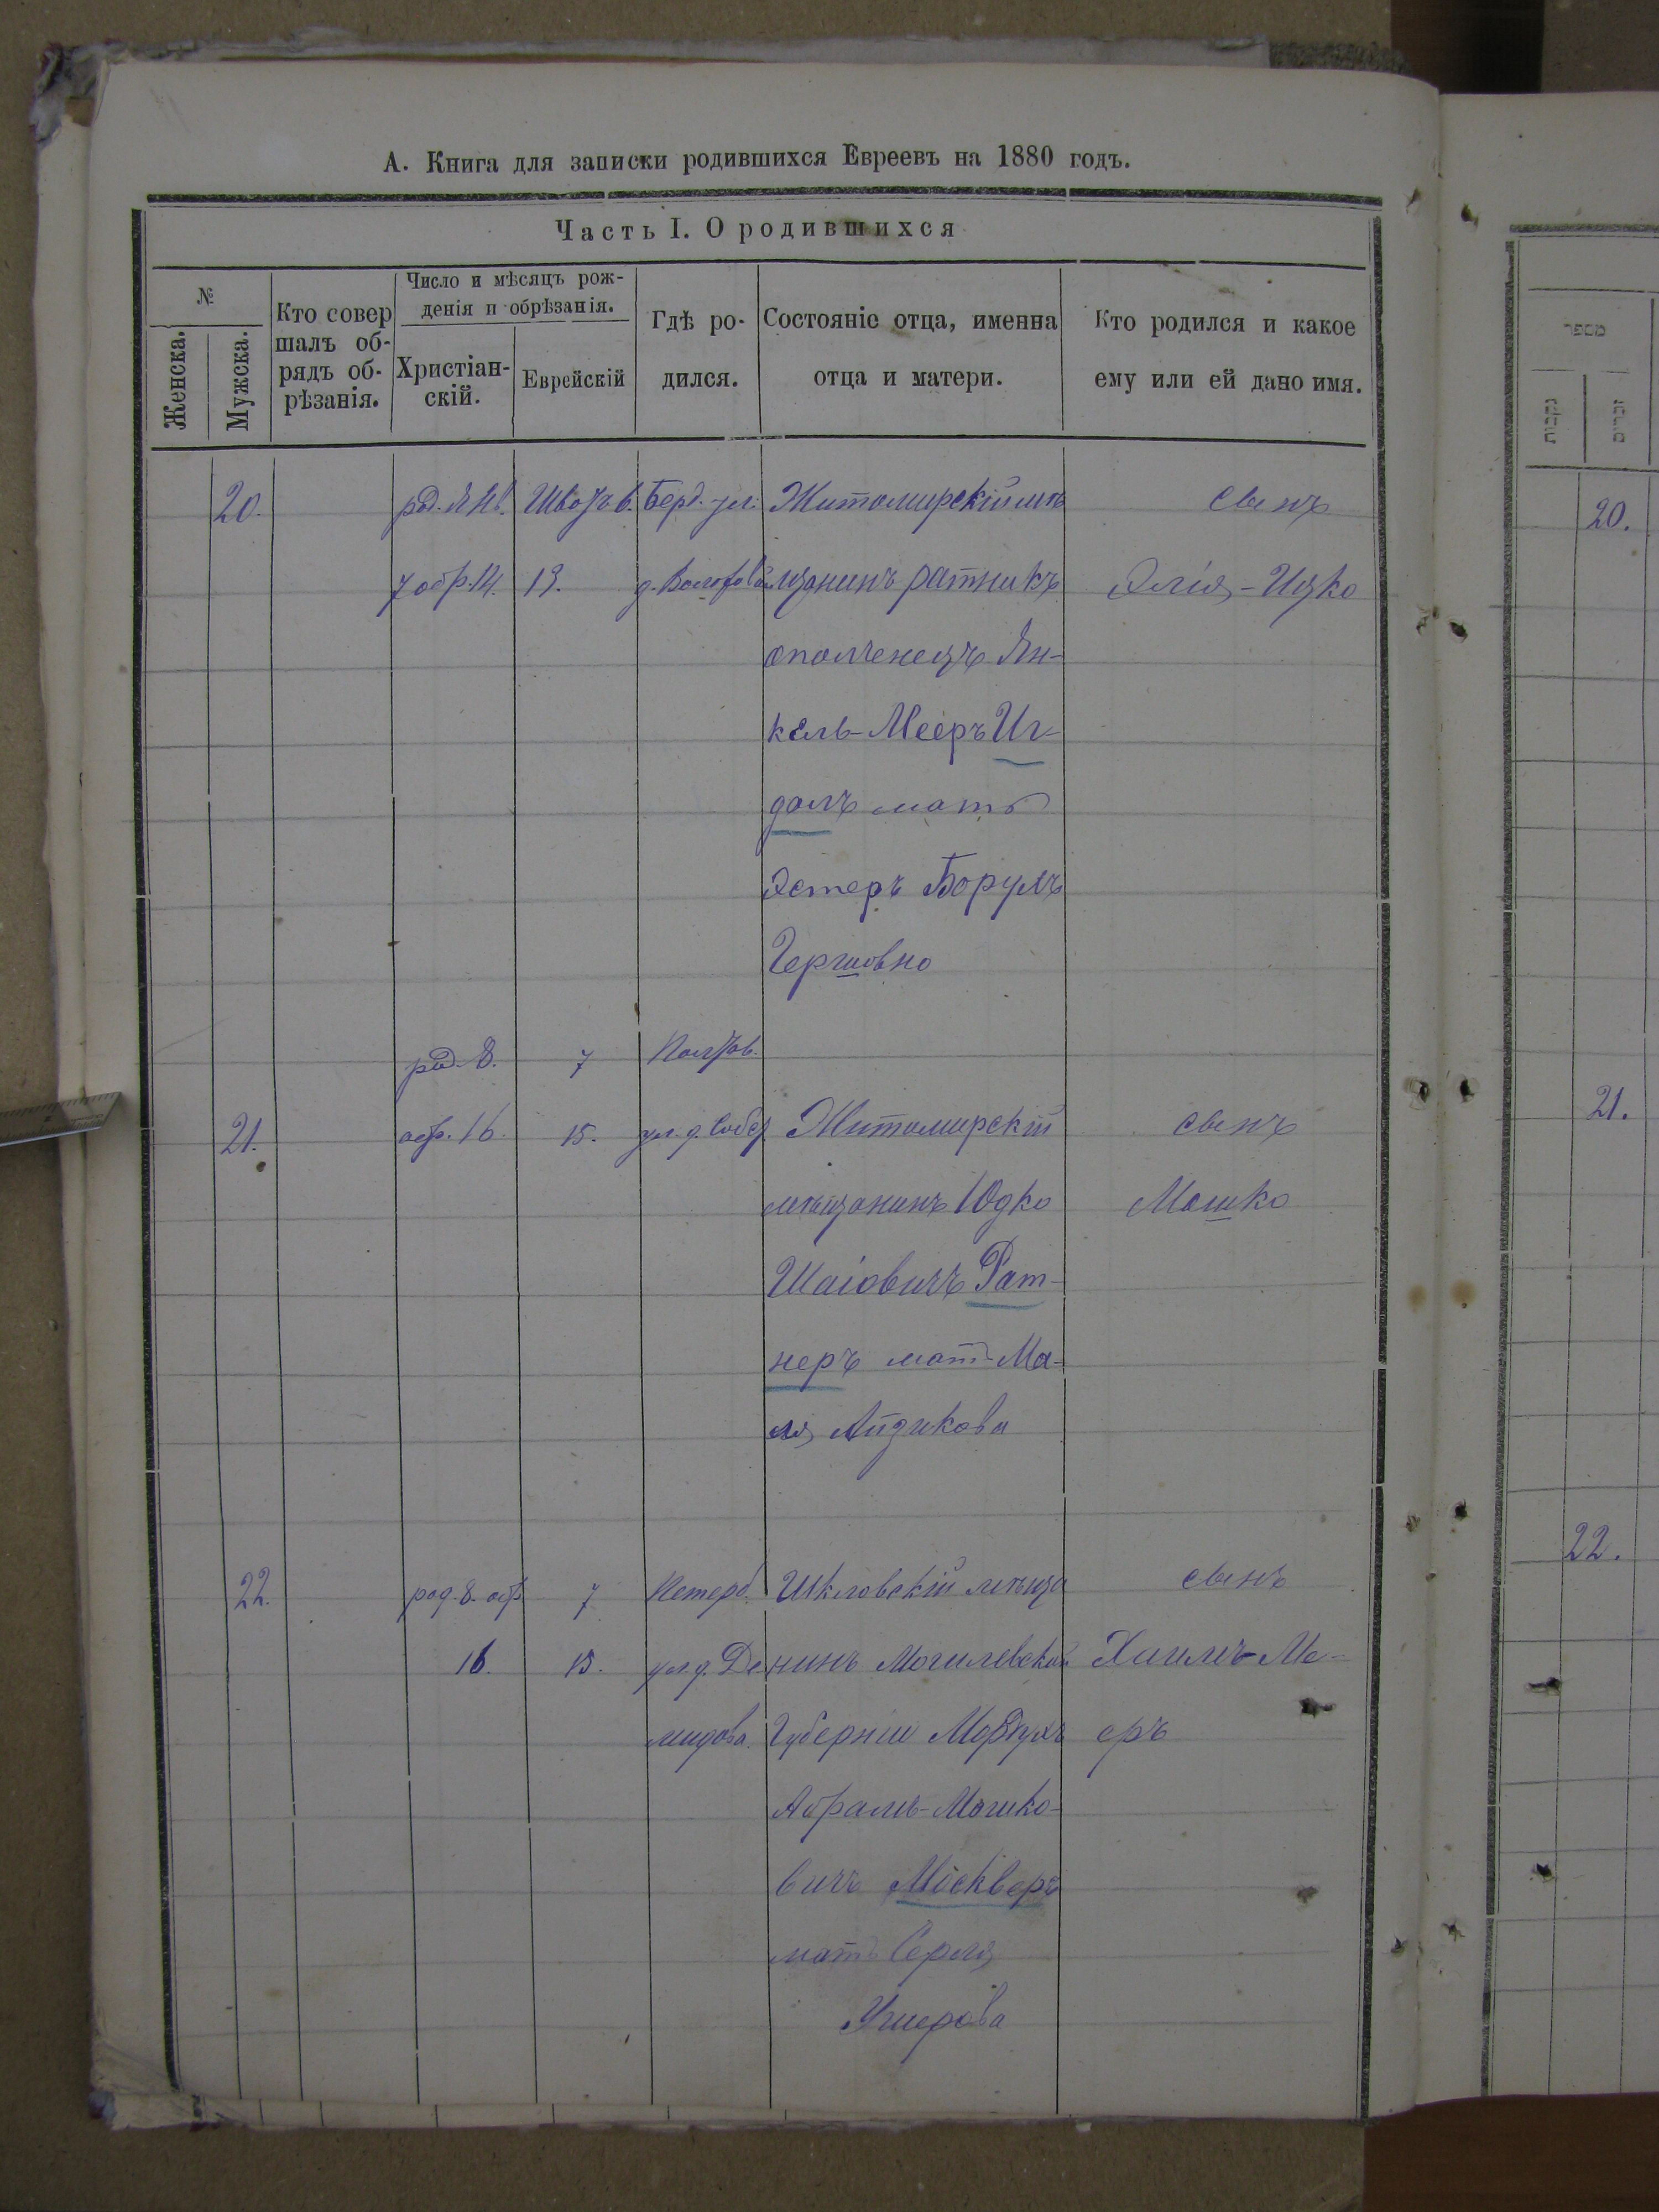 А. Книга для записки родившихся Евреевъ на 1880 годъ.
Часть I. О родившихся
№
Женска.
Мужска.
Кто совер
шалъ об-
рядъ об-
рѣзанія.
Число и мѣсяцъ рож-
денія и обрѣзанія.
Христіан-
скій.
Еврейскій
Гдѣ ро-
дился.
Состояніе отца, именна
отца и матери.
Кто родился и какое
ему или ей дано имя.
20.
род. Янв.
7 обр. 14.
13.
Берд. ул.
Житомирскій мѣ
щанинъ ратникъ
ополченецъ Ян-
кель-Мееръ Иг-
далъ мать
Эстеръ Борухъ
Гершовно
сынъ
Элія-Ицко
21.
род. 8.
обр. 16.
7
15.
ул. д.
Житомирскій
мѣщанинъ Юдко
Шаіовичъ Рат-
неръ мать Ма-
ля
сынъ
Мошко
22.
род. 8. обр
16.
7
15.
Петерб.
ул д. Де
мидова
Шкловскій мѣща
нинъ Могилевской
Губерніи Мордухъ
Абрамъ-Мошко-
вичъ Москверъ
мать
Ушерова
сынъ
Хаимъ-Ме-
еръ
מספר
נקבות
זכרים
20.
21.
22.